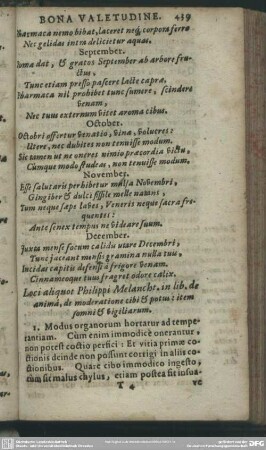 BONA VALETUDINE. 439
Pharmaca nemo bibat, laceret neq; corpora ferro
Nec gelidas intra delicietur aquas.
September.
Poma dat, & gratos September ab arbore fru-
ctus,
Tunc etiam presso pascere lacte capræ.
Pharmaca nil prohibet tunc sumere, scindere
venam,
Nec tuus externum vitet aroma cibus.
October.
Octobri offertur venatio, vina, volucres:
Utere, nec dubites non tenuisse modum.
Sic tamen ut ne uneres nimio præcordia victu,
Cumque modo studeas, non tenuisse modum.
November.
Esse salutaris perhibetur mulsa Novembri,
Gingiber & dulci fissile melle natans,
Tum neque sæpe laves, Veneris neque sacra fre-
quentes:
Ante senex tempus ne videare suum.
December.
Juxta mense focum calidu utare Decembri,
Tunc jaceant mensis gramina nulla tuis,
Incidas capitis defensa à frigore venam.
Cinnameoque tuus fragret odore calix.
Loci aliquot Philippi Melancht. in lib. de
animâ, de moderatione cibi & potus: item
somni & vigiliarum.
1. Modus organorum hortatur ad tempe-
rantiam. Cum enim immodicè onerantur,
non potest coctio perfici: Et vitia primæ co-
ctionis deinde non possunt corrigi in aliis co-
ctionibus. Quare cibo immodico ingesto,
tum fit malus chylus, etiam postea fit insua-
T 4 ve